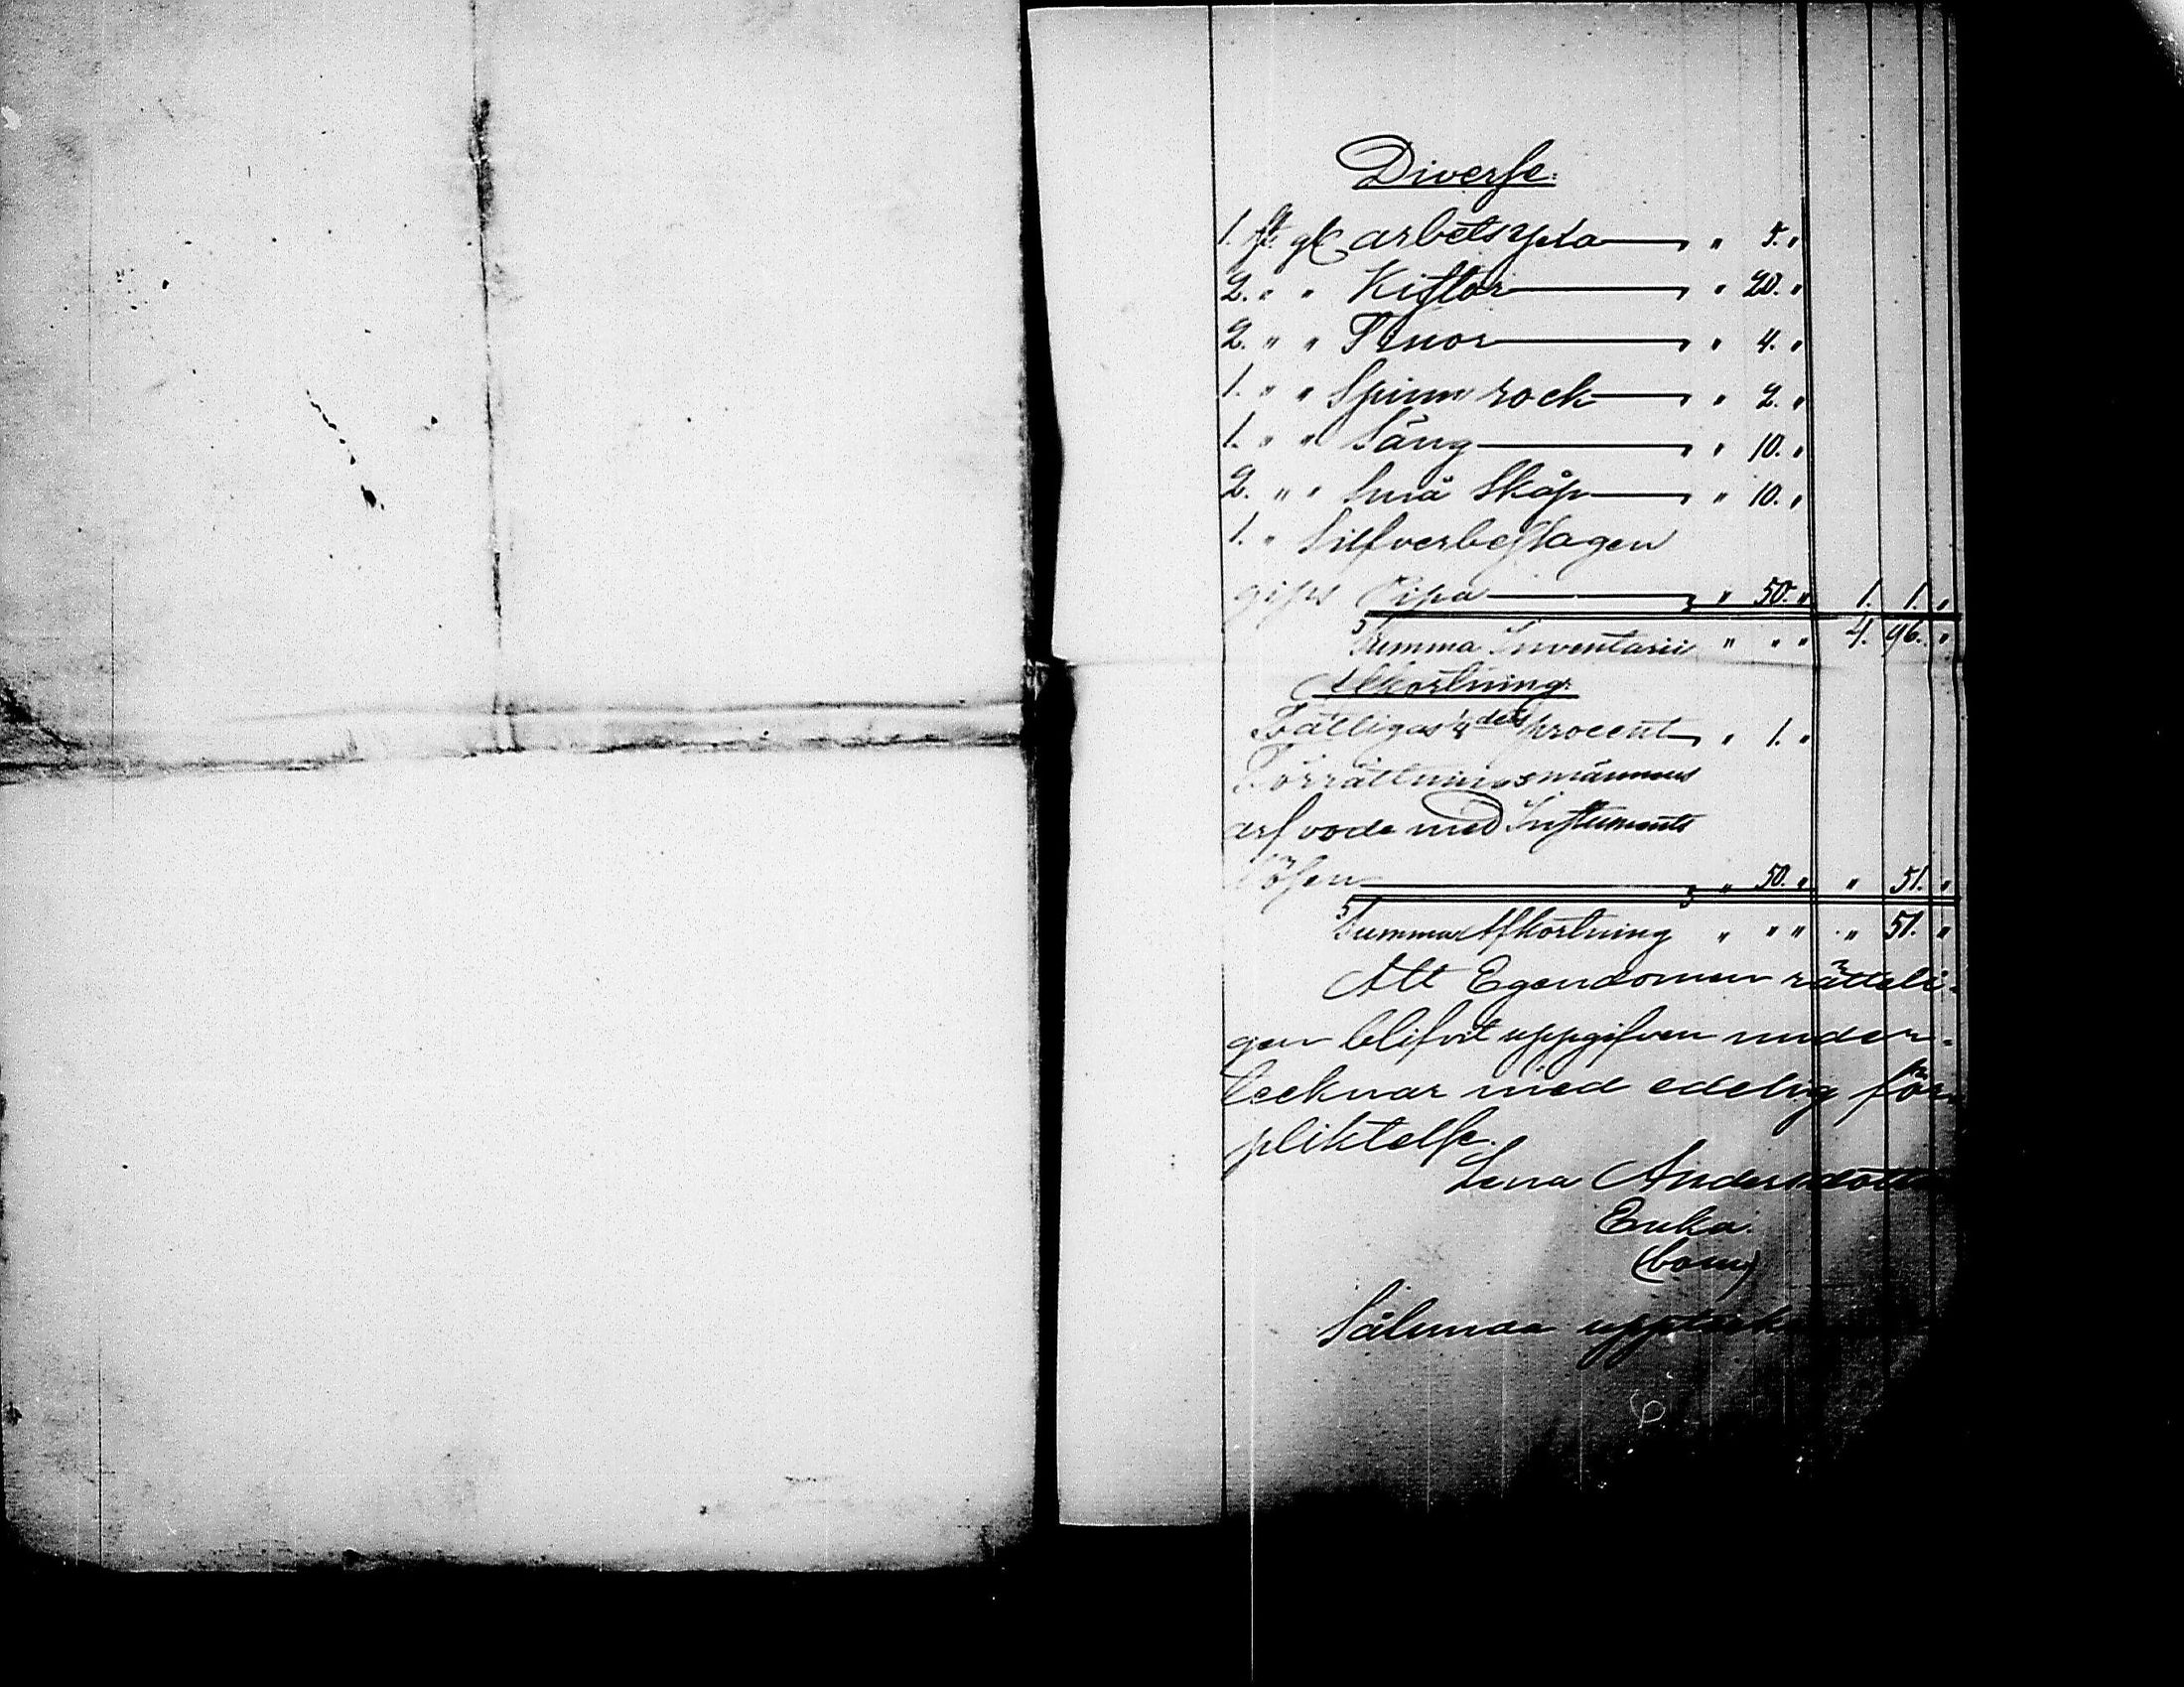 Diverse:
1. st. gl. arbetsyxa " 5. "
2. " " Kistor " 20. "
2. " " Tinor " 4. "
1. " " Spinnrock " 2. "
1. " " Säng " 10. "
2. " " små Skåp " 10. "
1. " Silfverbeslagen
gips Pipa " 50. " 1. 1. "
Summa Inventarii " " " 4. 96. "
Afkortning:
Fattigas 1/4 dels procent " 1. "
Förrättningsmännens
arfvode med Instruments
lösen " 50. " " 51. "
Summa Afkortning " " " " 51. "
Att Egendomen rätteli-
gen blifvit uppgifven under-
tecknar med edelig för-
pliktelse.
Lena Andersdotter
Enka.
(bom)
Sålunda